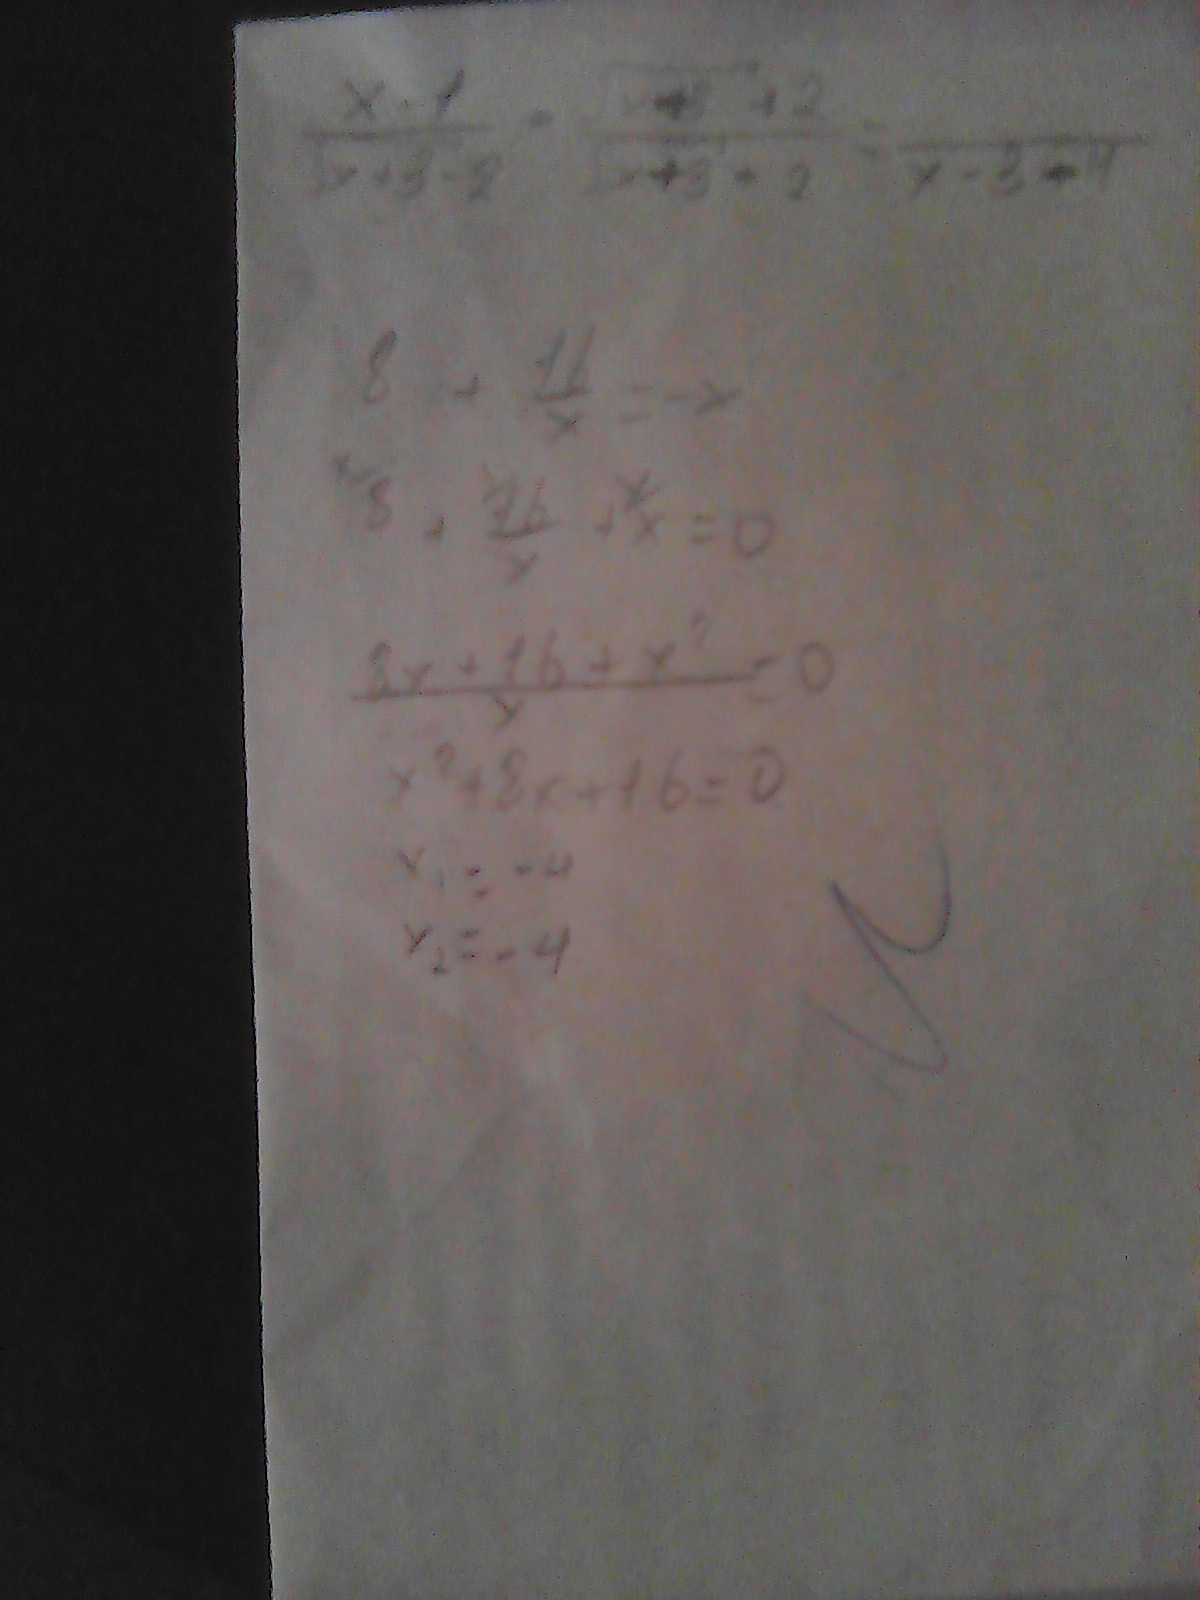 x-1/√x+3-2 - √x+3+2/√x+3+2 = /x-3-4
8 + 16/x = -x
x/8 + x/16/x + x/x = 0
8x+16+x²/x = 0
x²+8x+16=0
x₁=-4
x₂=-4